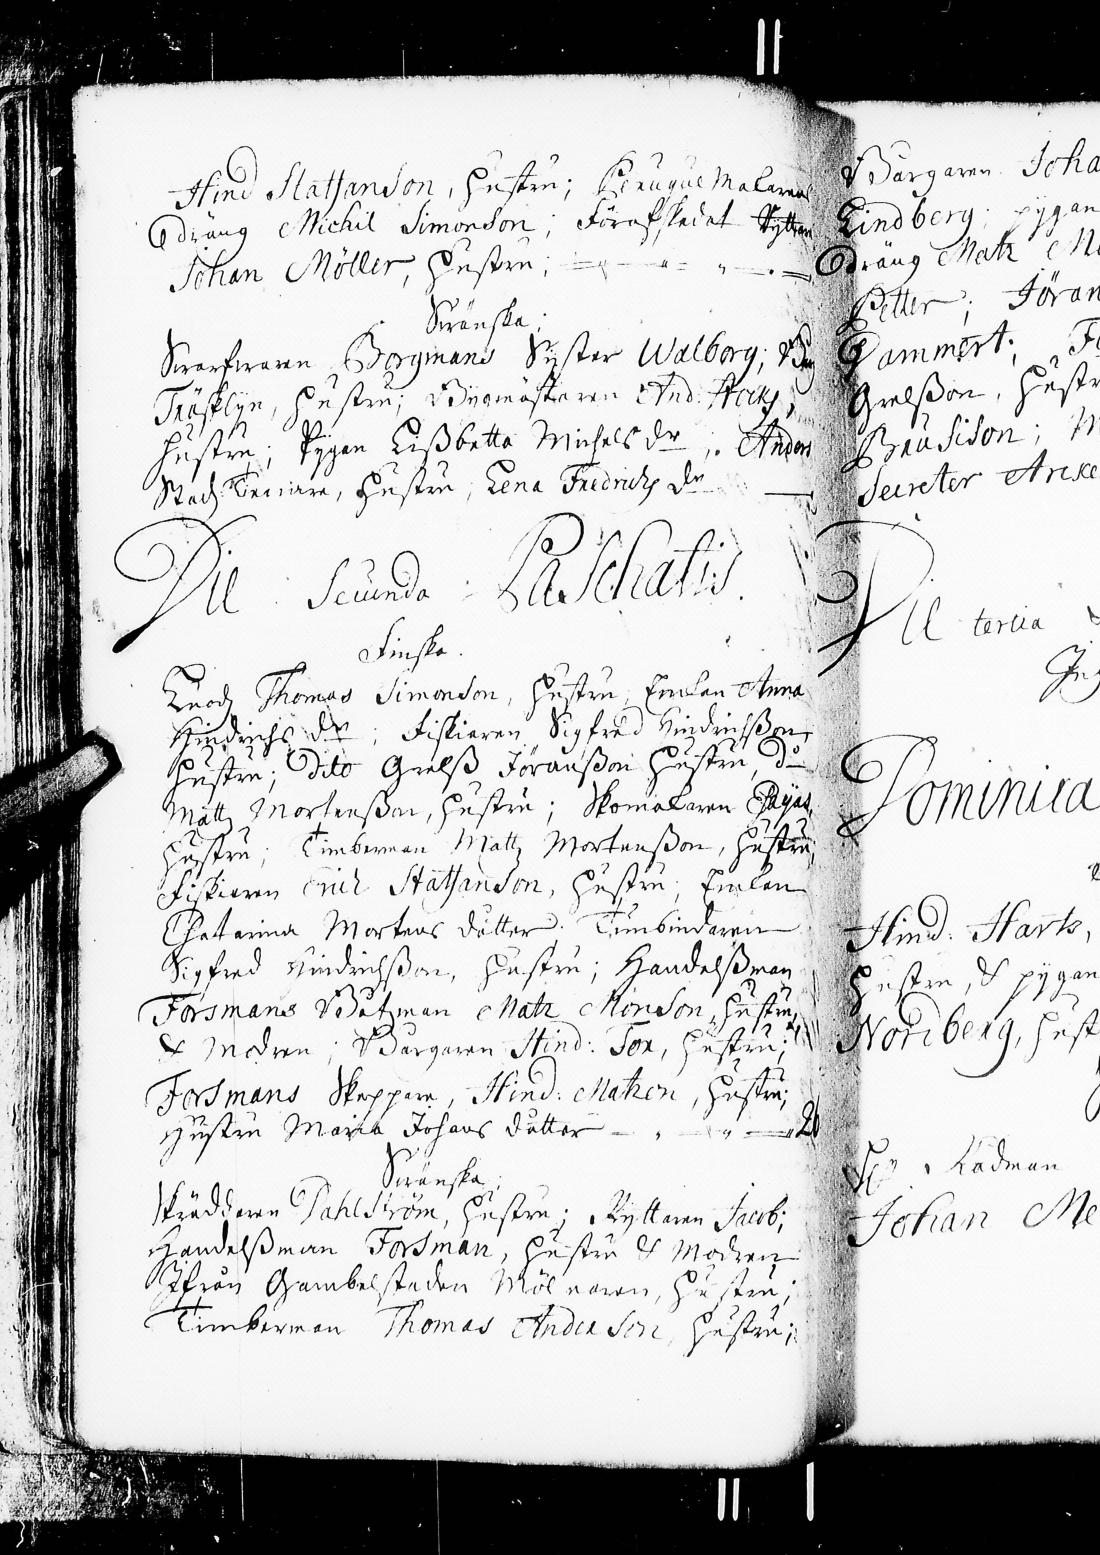 Hind Slatsanson, Hustru; Peruque Makarens
dräng Michil Simonson; Förafskedat Ryttaren
Johan Möller, Hustru;
Swänska;
Swarfwaren Borgmans Syster Walborg;
Träsklyn, Hustru; And:
Hustru; Pygan Lißbetta Michels dr; Anders
Hustru; Lena Fredrichs dr
Die Secunda Paschatis.
Finska.
Thomas Simonson, Hustru; Enckan Anna
Hindrichs dr; Fiskiaren Sigfred Hindrichßon,
Hustru; Dito Grelß Jöranßon Hustru, do
Matz Mortenßon, Hustru; Skomakaren
Hustru; Timberman Matz Mortenßon, Hustru;
Fiskiaren Erich Slatsanson, Hustru; Enckan
Chatarina Mortens dotter. Tunbindaren
Sigfred Hindrichßon, Hustru; Handelßman
Forsmans Båtzman Matz Monson, Hustru,
& Modren; Borgaren Hind: Tor, Hustru;
Forsmans Skeppare, Hind: Matzen, Hustru;
Hustru Maria Johans dotter
Swänska;
Skräddaren Dahlström, Hustru; Ryttaren Jacob;
Handelßman Forsman, Hustru & Modren
Ifrån Gambelstaden Mölnaren, Hustru;
Timberman Thomas Anderson, Hustru;
Borgaren Joha
Lindberg; pygan
dräng Matz
Petter; Jöran
Dammert;
Grelßon, Hustr
Secreter
Die tertia
Dominica
Hind: Harts,
Hustru, & pygan
Nordberg, Hust
Rådman
Johan Me